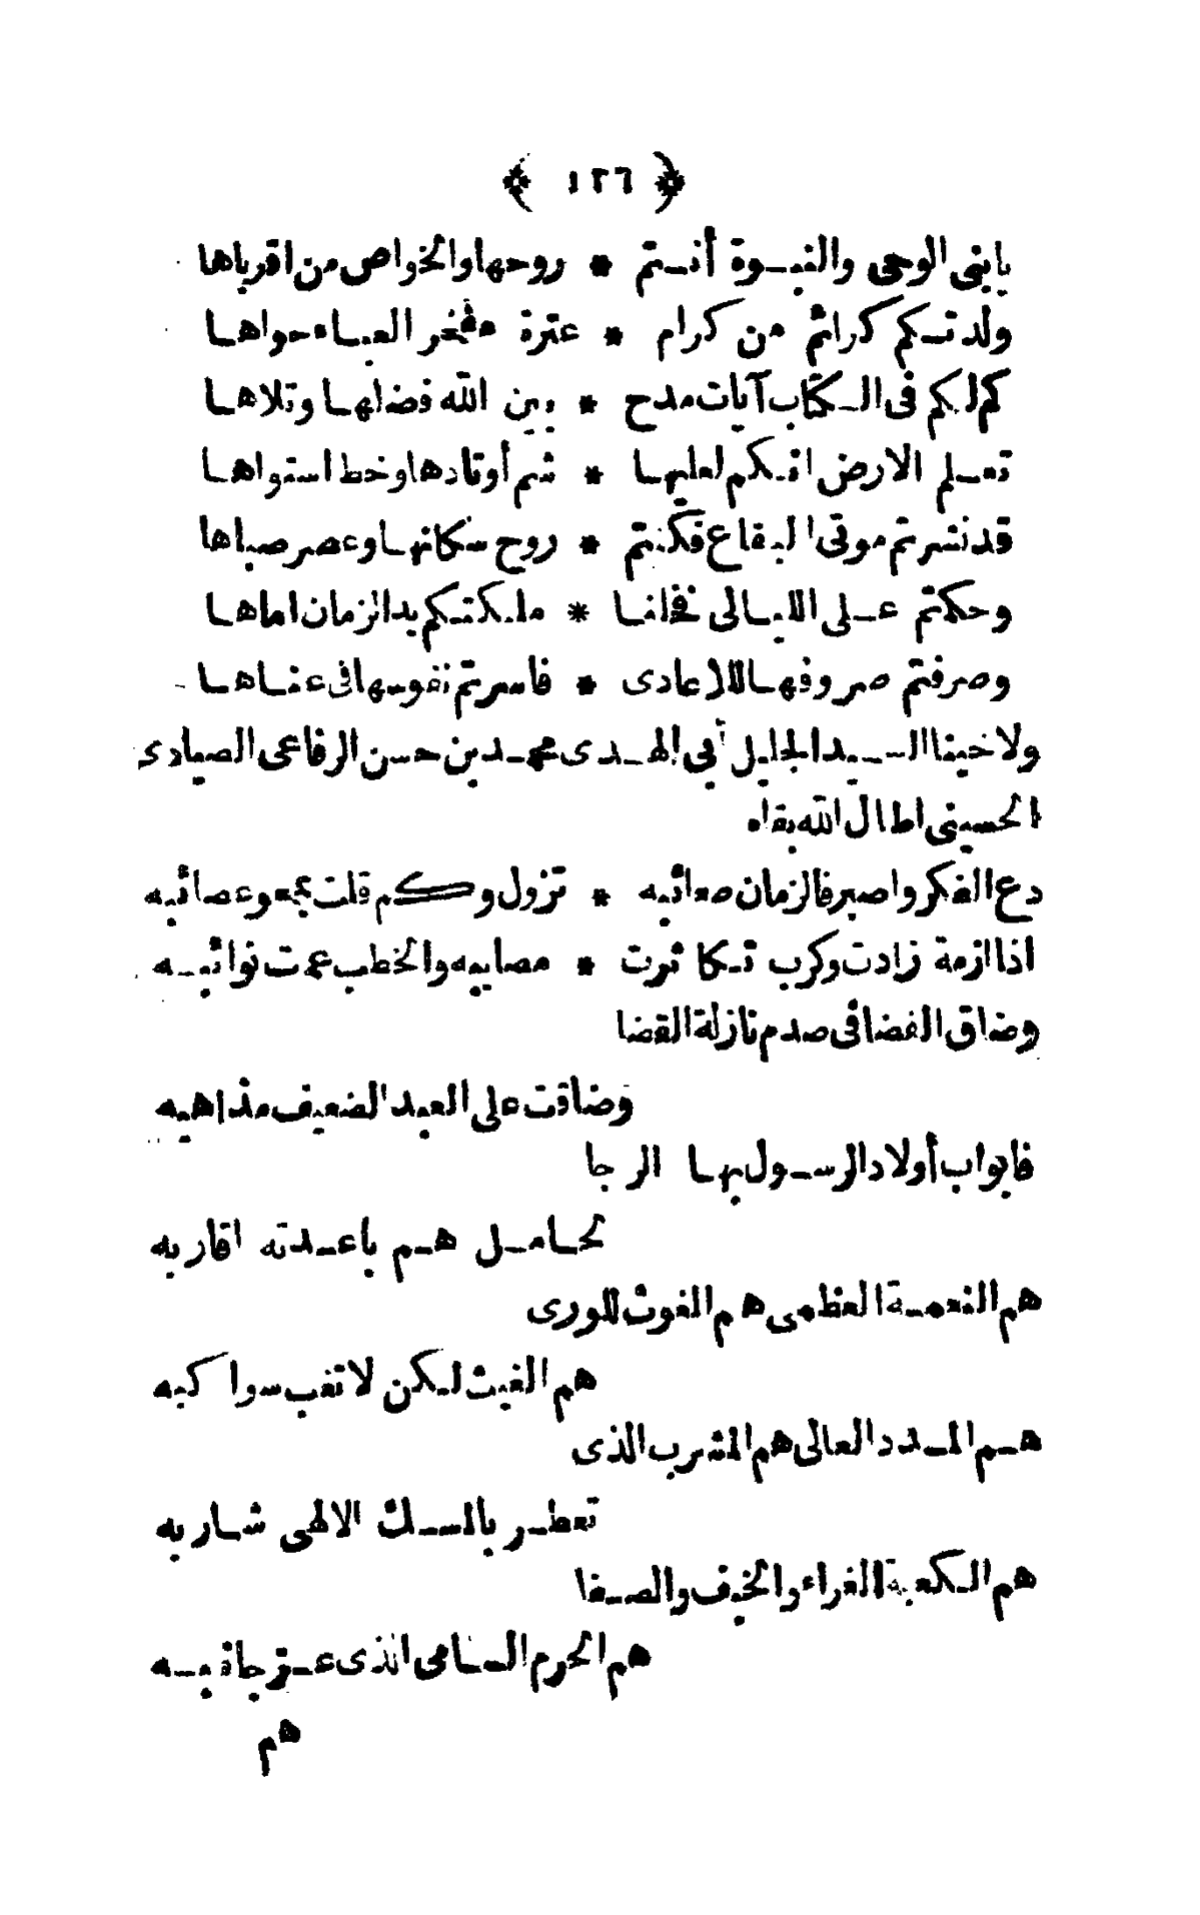 ﴿ ١٢٦ ﴾
يابنى الوحى والنبوة أنتم * روحها والخواص من اقرباها
ولدتكم كرائم من كرام * عترة مفخر العباء حواها
كم لكم فى الكتاب آيات مدح * بين الله فضلها وتلاها
تعلم الارض انكم لعليها * شم أوتادها وخط استواها
قد نشرتم موتى البقاع فكنتم * روح سكانها وعصر صباها
وحكمتم على الليالى فخانا * ملكتكم يد الزمان اماها
وصرفتم صروفها للاعادى * فاسرتم نفوسها فى عناها
ولاخينا السيد الجليل أبى الهدى محمد بن حسن الرفاعى الصيادى
الحسينى اطال الله بقاه
دع الفكر واصبر فالزمان صعائبه * تزول وكم قلت بجمع وعصائبه
اذا ازمة زادت وكرب تكاثرت * مصايبه والخطب عمت نوائبه
وضاق الفضا فى صدم نازلة القضا
وضاقت على العبد الضعيف مذاهبه
فابواب أولاد الرسول بها الرجا
لحامل هم باعدته اقاربه
هم النعمة العظمى هم الغوث للورى
هم الغيث لكن لا تغب سواكبه
هم المدد العالى هم المشرب الذى
تعطر بالمسك الالهى شاربه
هم الكعبة الغراء والخيف والصفا
هم الحرم السامى الذى عز جانبه
هم